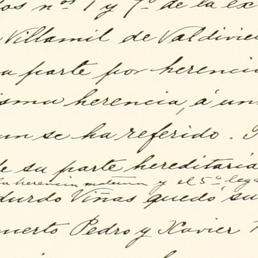 os nos 1 y 7o de la ex
Villamil de Valdivie
a parte por herenci
isma herencia, á un
un se ha referido.
de su parte hereditaria
la herencia materna y el 5o lega
durdo Viñas quedó, su
muerto Pedro y Xavier